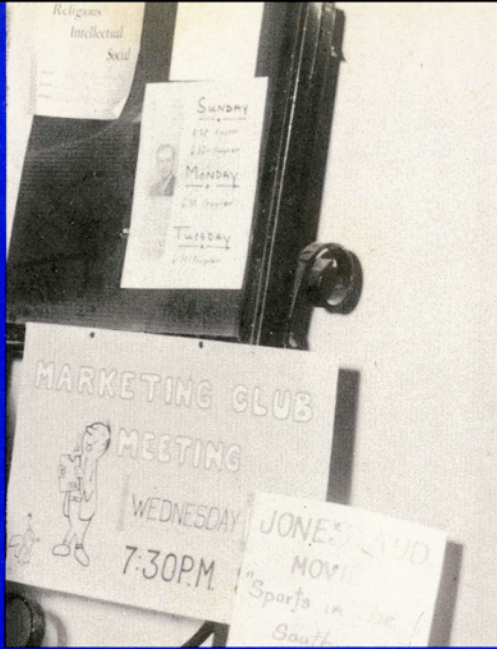 Religious
Intellectual
Social
SUNDAY
MONDAY
TUESDAY
MARKETING CLUB
MEETING
WEDNESDAY
7:30P.M
JONES AUD.
MOVIE
"Sports in
South